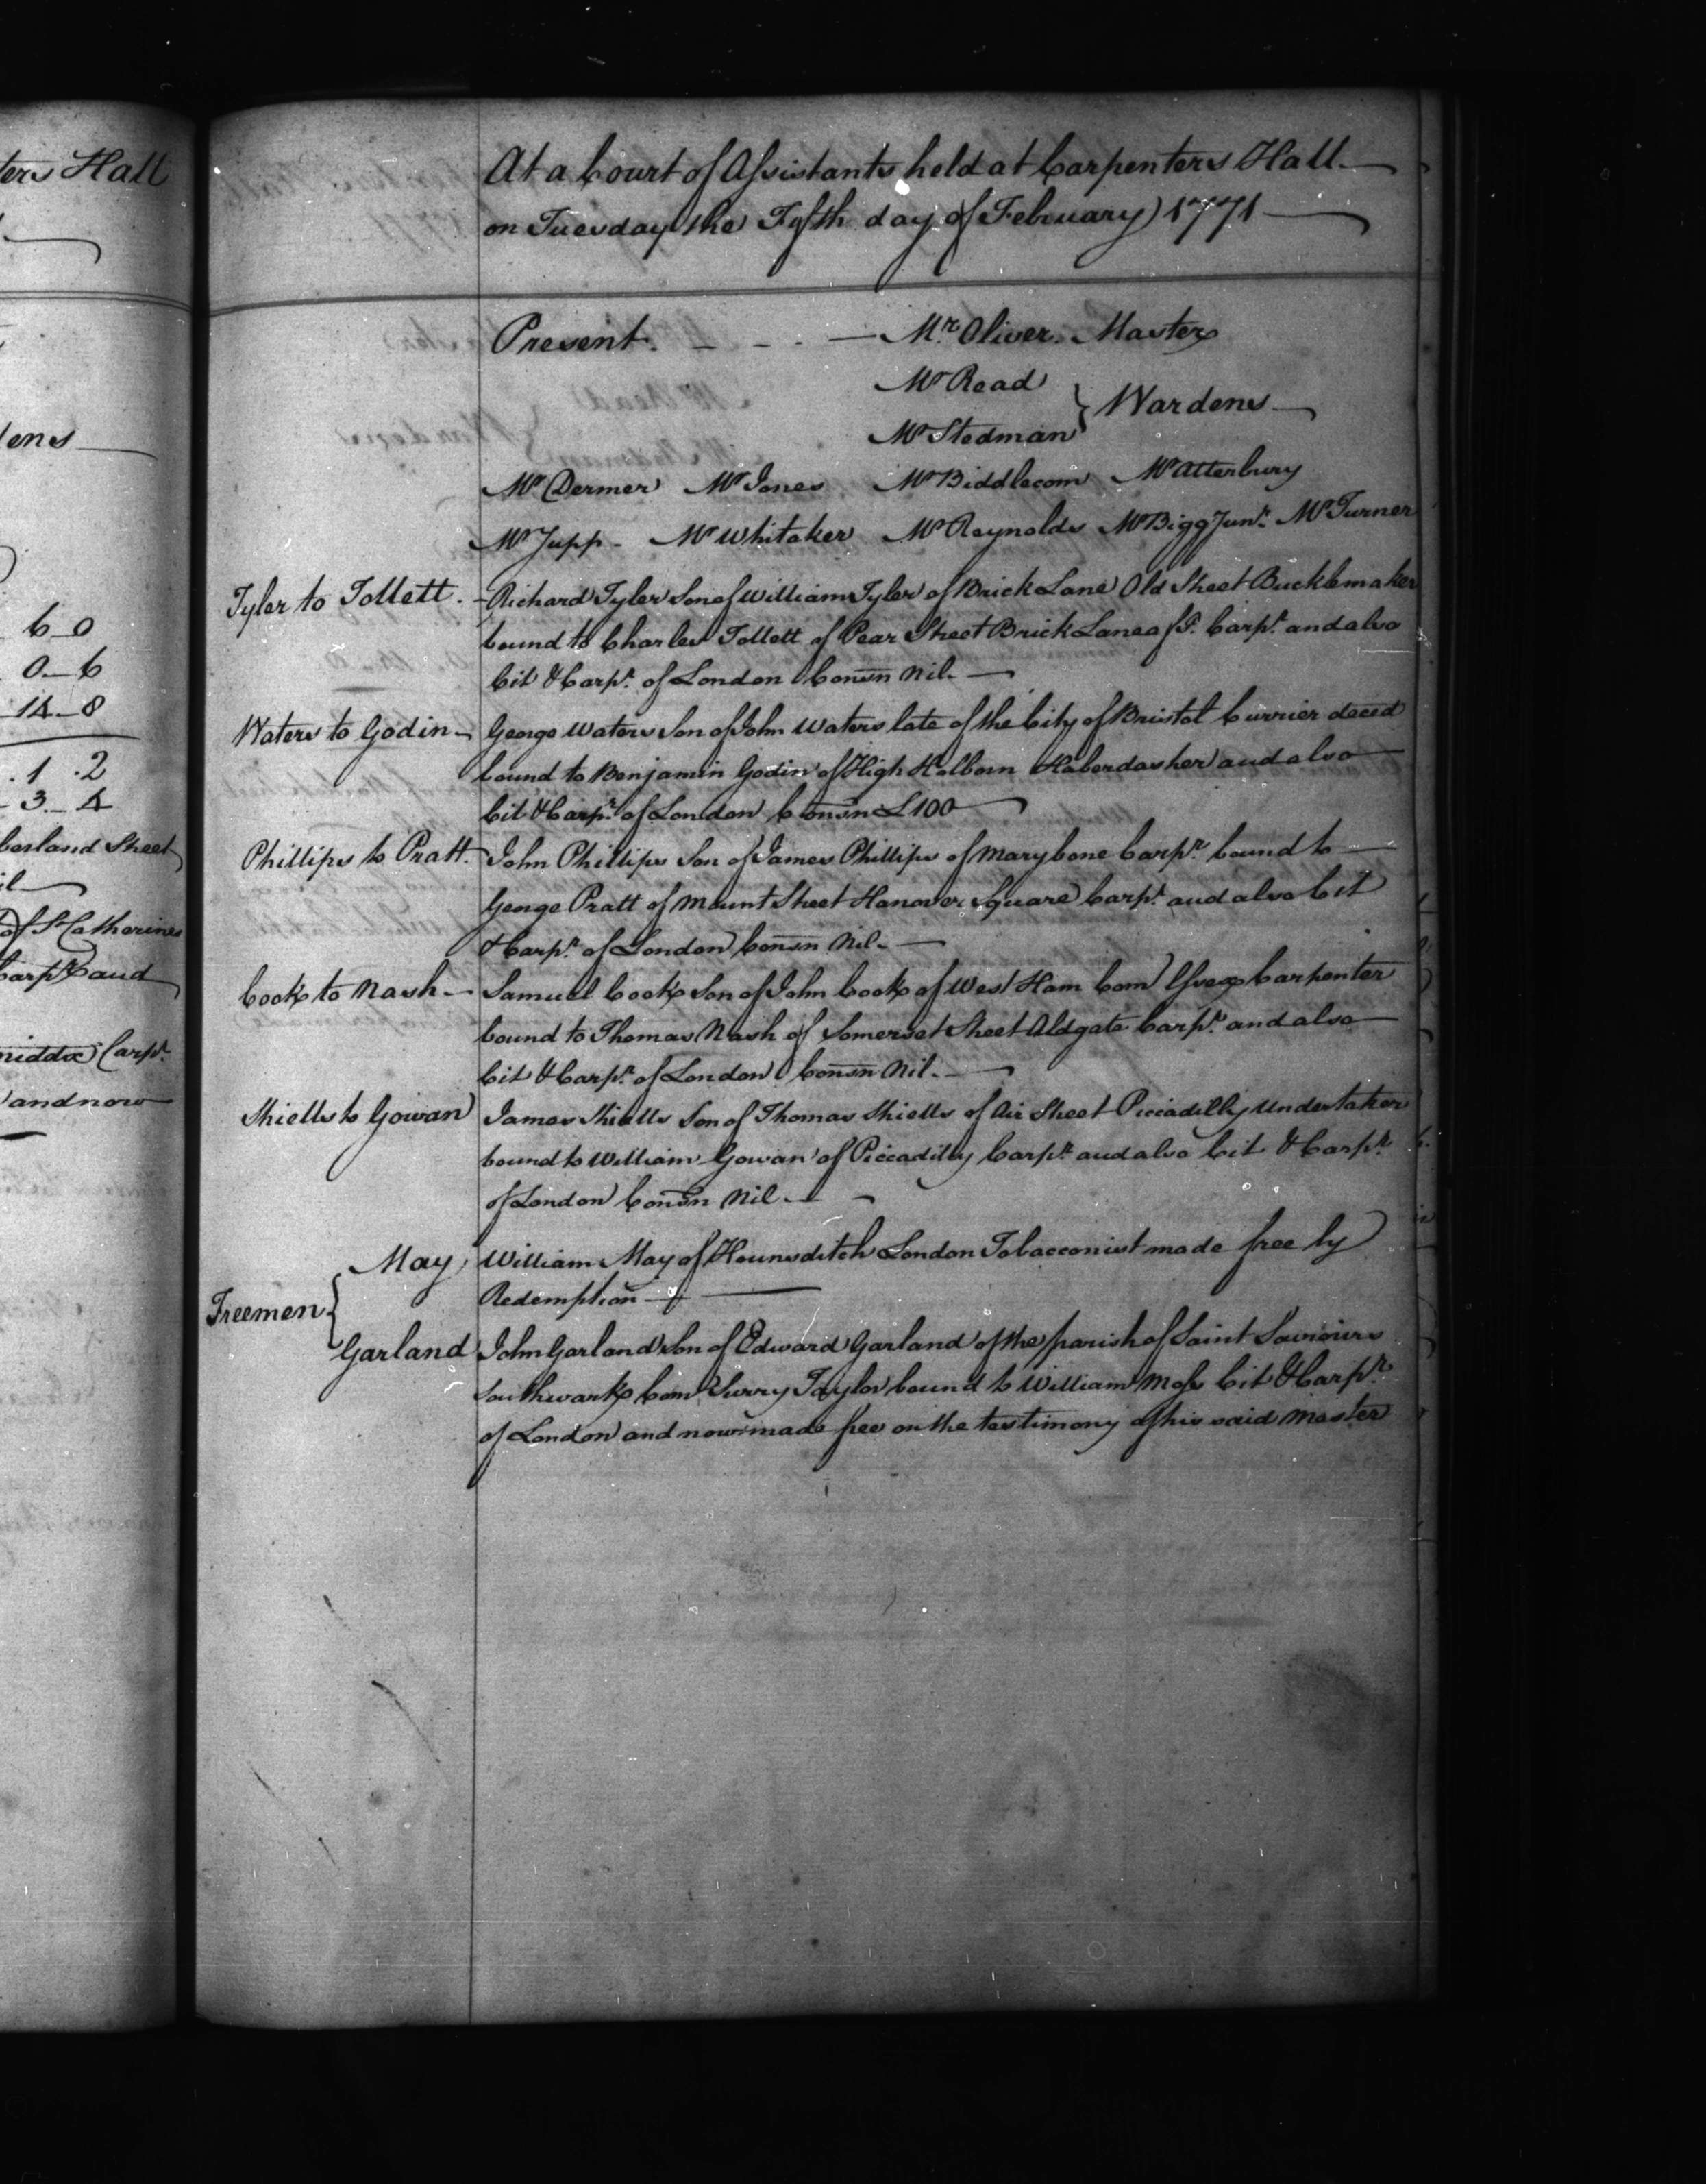 ters Hall
dens
6 - 0
0 - 6
14 - 8
. 1 . 2
- 3 - 4
berland Street
il
of St Catherines
Carpr. and
middx Carpr.
and now
At a Court of Assistants held at Carpenters Hall
on Tuesday the Fifth day of February 1771
Present. - - - - Mr. Oliver. Master
Mr Read
Wardens
Mr Stedman
Mr Dermer Mr Jones Mr Biddlecom Mr Atterbury
Mr Jupp - Mr Whitaker Mr Reynolds Mr Bigg Junr. Mr Turner
Tyler to Tollett. - Richard Tyler Son of William Tyler of Brick Lane Old Street Bucklemaker
bound to Charles Tollett of Pear Street Brick Lane afs. Carpr. and also
Cit & Carpr. of London Conson Nil. -
Waters to Godin - George Waters Son of John Waters late of the City of Bristol Currier deced
bound to Benjamin Godin of High Holborn Haberdasher and also
Cit & Carpr. of London Conson £100
Phillips to Pratt. John Phillips Son of James Phillips of Marybone Carpr. bound to
George Pratt of Mount Street Hanover Square Carpr. and also Cit
& Carpr. of London Conson Nil. -
Cook to Nash - Samuel Cook Son of John Cook of West Ham Com Essex Carpenter
bound to Thomas Nash of Somerset Street Aldgate Carpr. and also
Cit & Carpr. of London Conson Nil. -
Shiells to Gowan James Shiells Son of Thomas Shiells of Air Street Piccadilly Undertaker
bound to William Gowan of Piccadilly Carpr. and also Cit & Carpr.
of London Conson Nil - -
May William May of Hounsditch London Tobacconist made free by
Redemption
Freemen
Garland John Garland Son of Edward Garland of the parish of Saint Saviours
Southwark Com Surry Taylor bound to William Moss Cit & Carpr.
of London and now made free on the testimony of his said Master